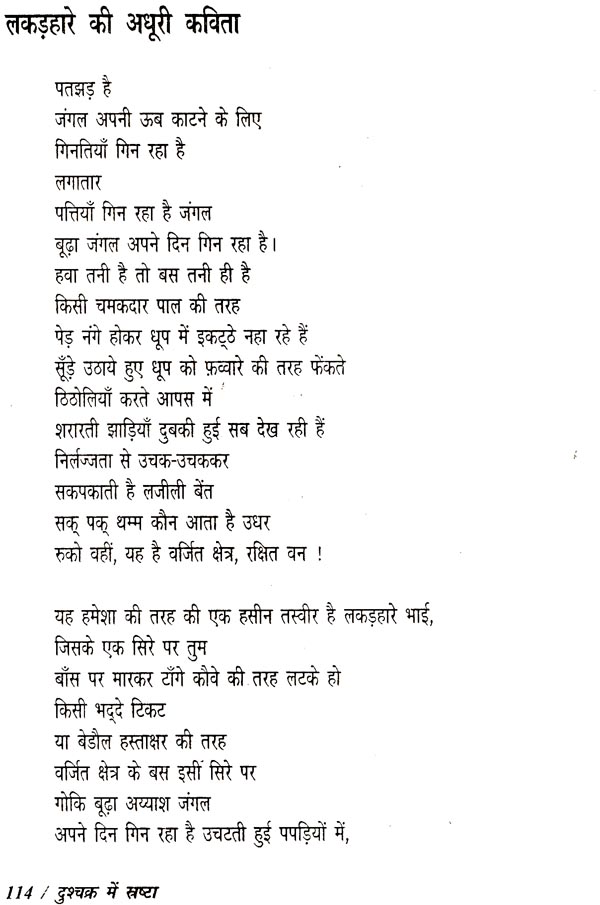 लकड़हारे की अधूरी कविता
पतझड़ है
जंगल अपनी ऊब काटने के लिए
गिनतियाँ गिन रहा है
लगातार
पत्तियाँ गिन रहा है जंगल
बूढ़ा जंगल अपने दिन गिन रहा है।
हवा तनी है तो बस तनी ही है
किसी चमकदार पाल की तरह
पेड़ नंगे होकर धूप में इकट्ठे नहा रहे हैं
सूँड़े उठाये हुए धूप को फ़व्वारे की तरह फेंकते
ठिठोलियाँ करते आपस में
शरारती झाड़ियाँ दुबकी हुई सब देख रही हैं
निर्लज्जता से उचक-उचककर
सकपकाती है लजीली बेंत
सक् पक् थम्म कौन आता है उधर
रुको वहीं, यह है वर्जित क्षेत्र, रक्षित वन !
यह हमेशा की तरह की एक हसीन तस्वीर है लकड़हारे भाई,
जिसके एक सिरे पर तुम
बाँस पर मारकर टाँगे कौवे की तरह लटके हो
किसी भद्दे टिकट
या बेडौल हस्ताक्षर की तरह
वर्जित क्षेत्र के बस इसी सिरे पर
गोकि बूढ़ा अय्याश जंगल
अपने दिन गिन रहा है उचटती हुई पपड़ियों में,
114 / दुश्चक्र में स्रष्टा